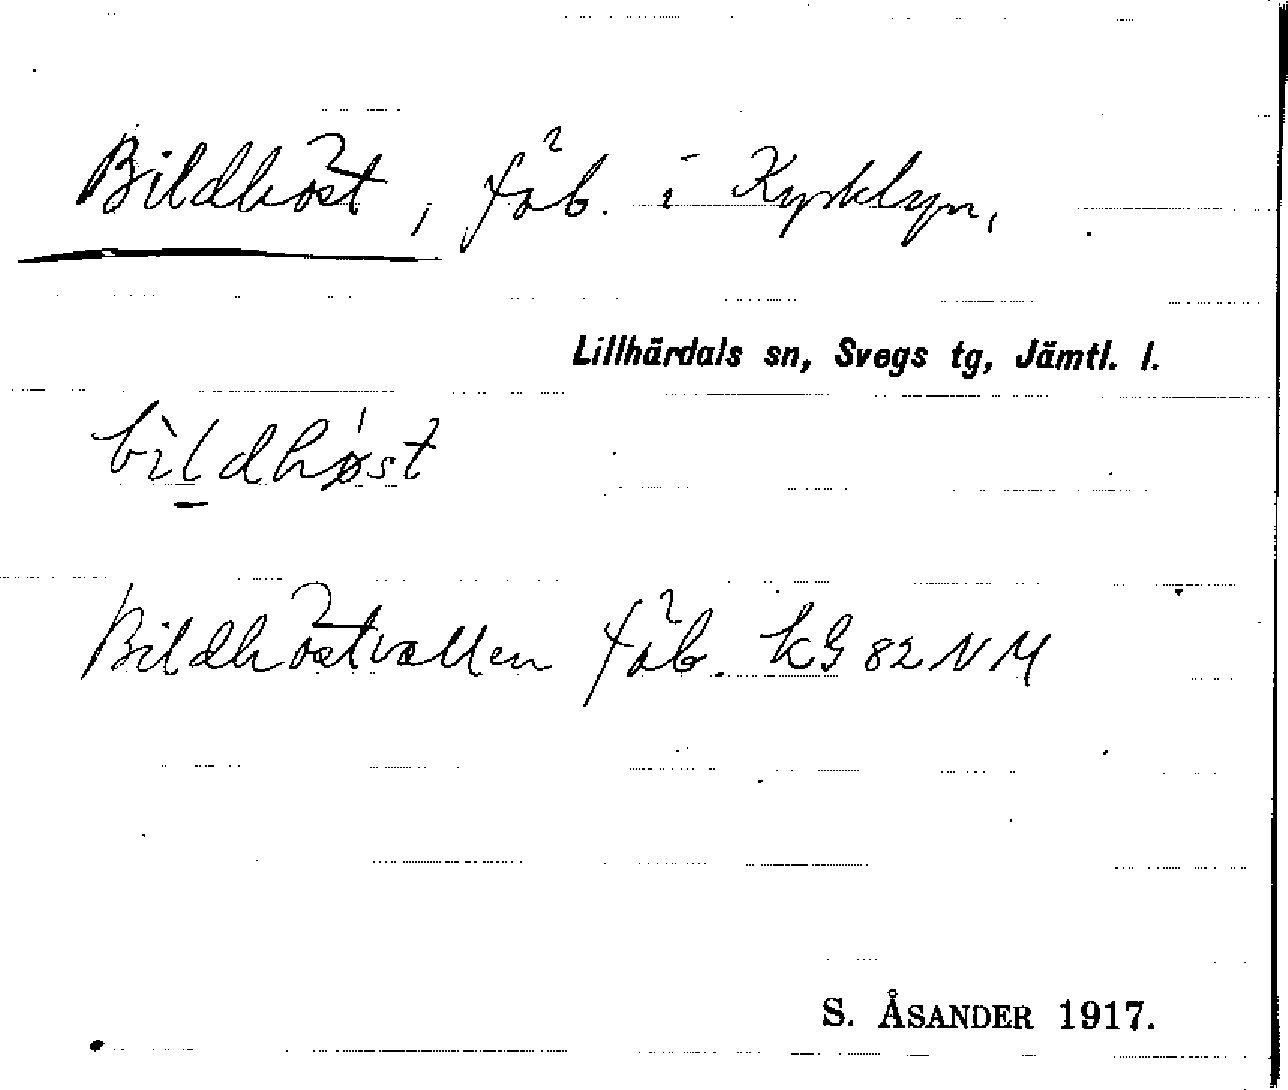 Bildhöst, fäb. i Kyrkbyn,
Lillhärdals sn, Svegs tg, Jämtl. l.
bìldhø̍st
Bildhöstvallen fäb. kG 82 NM
S. ÅSANDER 1917.